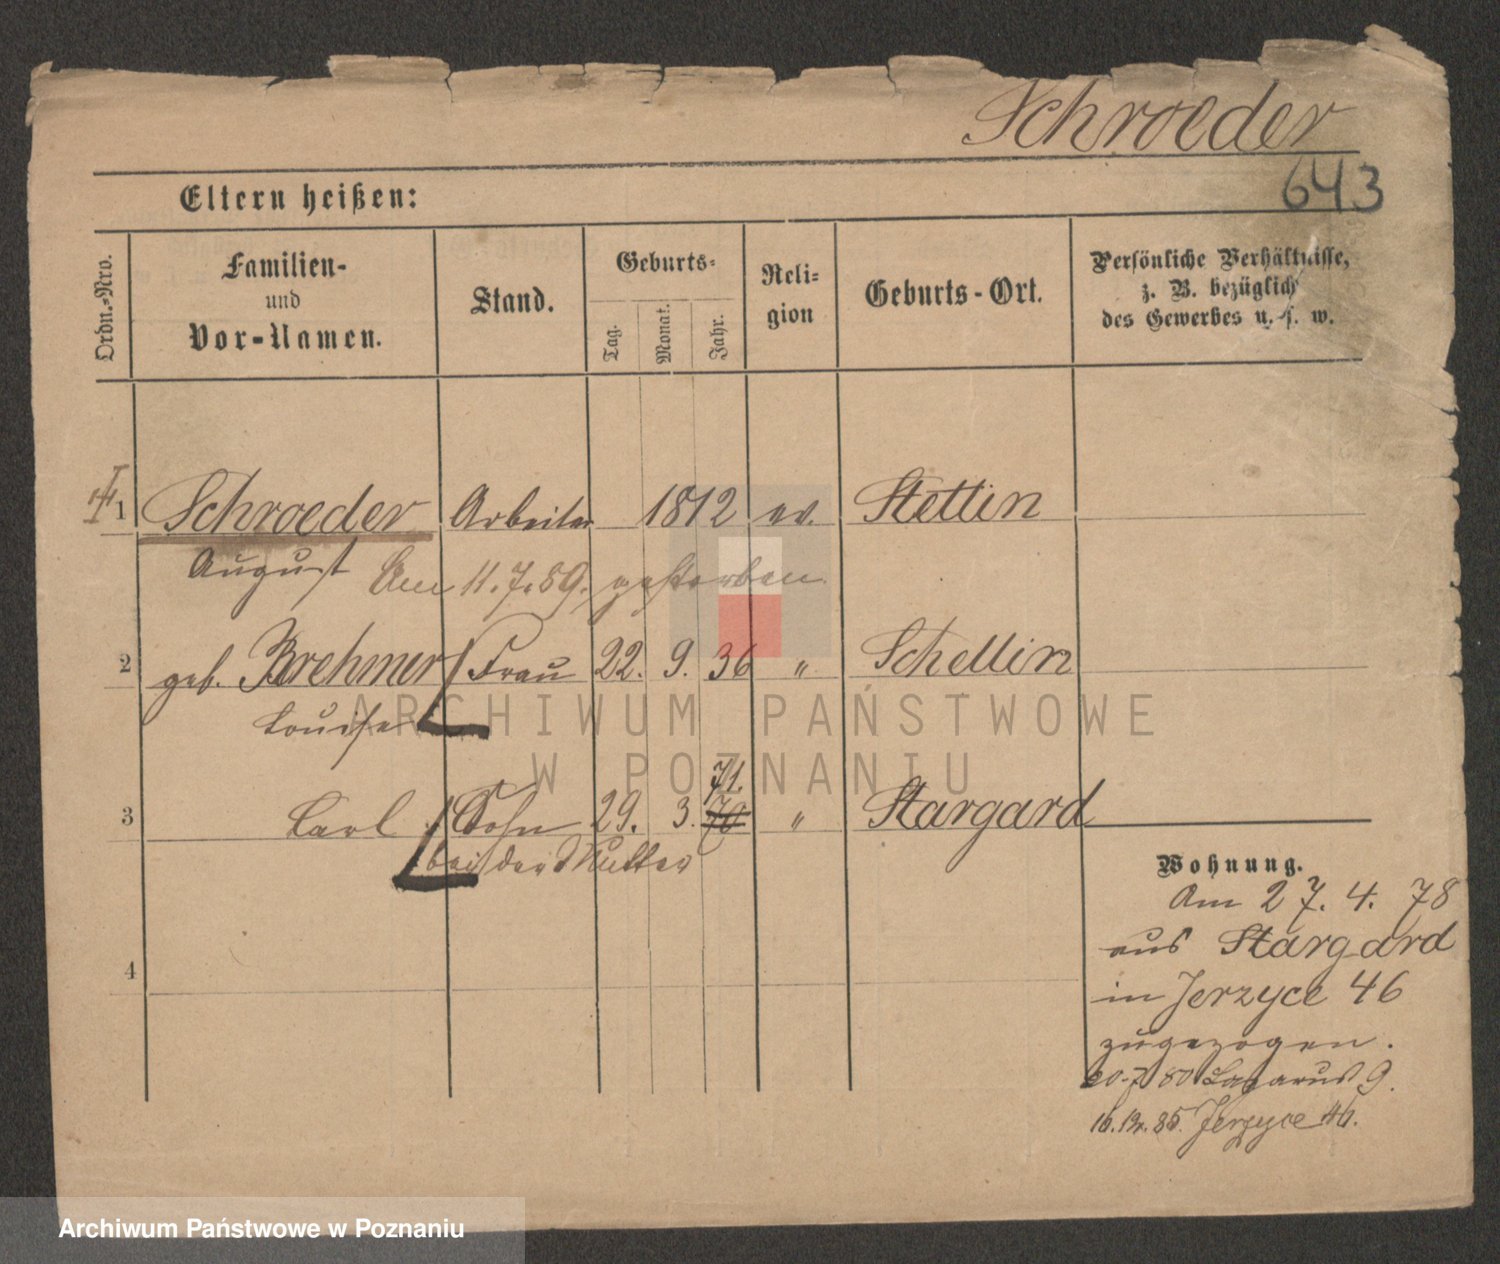 Schroeder
643
Eltern heißen:
Ordn.-Nro.
Familien-
und
Vor-Namen.
Stand.
Geburts-
Tag.
Monat.
Jahr.
Reli-
gion
Geburts-Ort.
Persönliche Verhältnisse,
z. B. bezüglich
des Gewerbes u. s. w.
1 Schroeder Arbeiter 1812 ev. Stettin
August Am 11.7.89. gestorben
2 geb. Brehmer Frau 22. 9. 36 " Schellin
Louise
71.
3 Carl Sohn 29. 3. 70 " Stargard
bei der Mutter
4
Wohnung.
Am 27. 4. 78
aus Stargard
in Jerzyce 46
zugezogen.
20.7.80 Lazarus 9.
16.12.85. Jerzyce 46.
ARCHIWUM PAŃSTWOWE
W POZNANIU
Archiwum Państwowe w Poznaniu